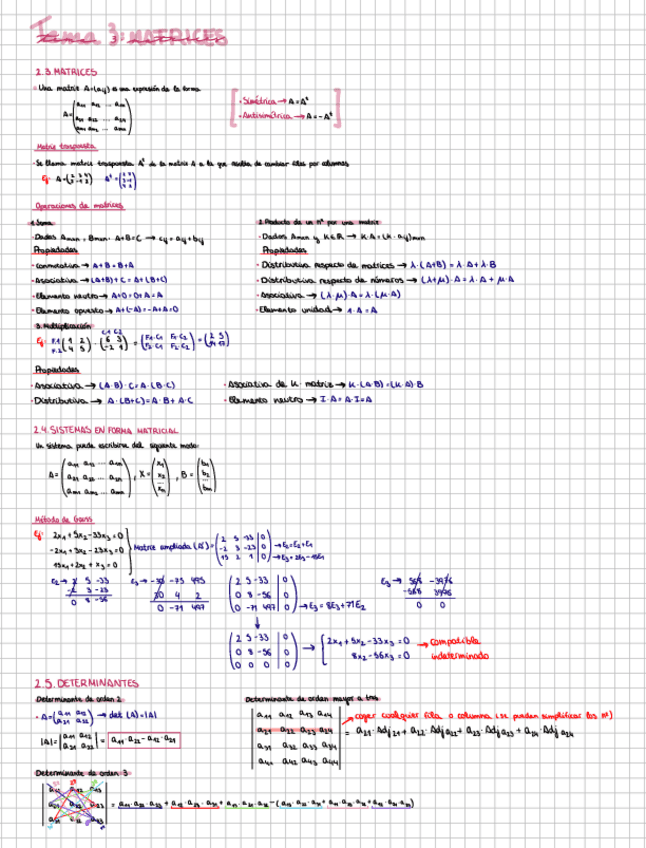 Tema 3: MATRICES
2.3. MATRICES
· Una matriz A=(aij) es una expresión de la forma
A=(a11 a12 ... a1n
a21 a22 ... a2n
am1 am2 ... amn)
· Simétrica → A=Aᵗ
· Antisimétrica → A=-Aᵗ
Matriz traspuesta
· Se llama matriz traspuesta Aᵗ de la matriz A a la que resulta de cambiar filas por columnas
Operaciones de matrices
1. Suma
· Dados Amxn y Bmxn. A+B=C → cij=aij+bij
Propiedades
· Conmutativa → A+B=B+A
· Asociativa → (A+B)+C=A+(B+C)
· Elemento neutro → A+0=0+A=A
· Elemento opuesto → A+(-A)=-A+A=0
2. Producto de un nº por una matriz
· Dados Amxn y K∈R → K·A=(K·aij)mxn
Propiedades
· Distributiva respecto de matrices → λ·(A+B)=λ·A+λ·B
· Distributiva respecto de números → (λ+μ)·A=λ·A+μ·A
· Asociativa → (λ·μ)·A=λ·(μ·A)
· Elemento unidad → 1·A=A
3. Multiplicación
C1 C2
Ej: F1 F2 (1 2
4 5)·(6 3
-2 1)=(F1·C1 F1·C2
F2·C1 F2·C2)=(2 5
14 17)
Propiedades
· Asociativa → (A·B)·C=A·(B·C)
· Distributiva → A·(B+C)=A·B+A·C
· Asociativa de K matriz → K·(A·B)=(K·A)·B
· Elemento neutro → I·A=A·I=A
2.4. SISTEMAS EN FORMA MATRICIAL
Un sistema puede escribirse del siguiente modo:
A=(a11 a12 ... a1n
a21 a22 ... a2n
am1 am2 ... amn), X=(x1
x2
...
xn), B=(b1
b2
...
bm)
Método de Gauss
Ej: 2x1+5x2-33x3=0
-2x1+3x2-23x3=0
15x1+2x2+x3=0
Matriz ampliada (A*)=(2 5 -33 | 0
-2 3 -23 | 0
15 2 1 | 0) → E2=E2+E1
→ E3=2E3-15E1
E2 → 2 5 -33
-2 3 -23
0 8 -56
E3 → -30 -75 495
30 4 2
0 -71 497
(2 5 -33 | 0
0 8 -56 | 0
0 -71 497 | 0) → E3=8E3+71E2
E3 → 568 -3976
-568 3976
0 0
(2 5 -33 | 0
0 8 -56 | 0
0 0 0 | 0) → 2x1+5x2-33x3=0
8x2-56x3=0
→ compatible
indeterminado
2.5. DETERMINANTES
Determinante de orden 2
· A=(a11 a12
a21 a22) → det (A)=|A|
|A|=|a11 a12
a21 a22|= a11·a22-a12·a21
Determinante de orden mayor a tres
a11 a12 a13 a14
a21 a22 a23 a24
a31 a32 a33 a34
a41 a42 a43 a44
coger cualquier fila o columna (se pueden simplificar los nº)
= a21·Adj21+a22·Adj22+a23·Adj23+a24·Adj24
Determinante de orden 3
a11 a12 a13
a21 a22 a23
a31 a32 a33